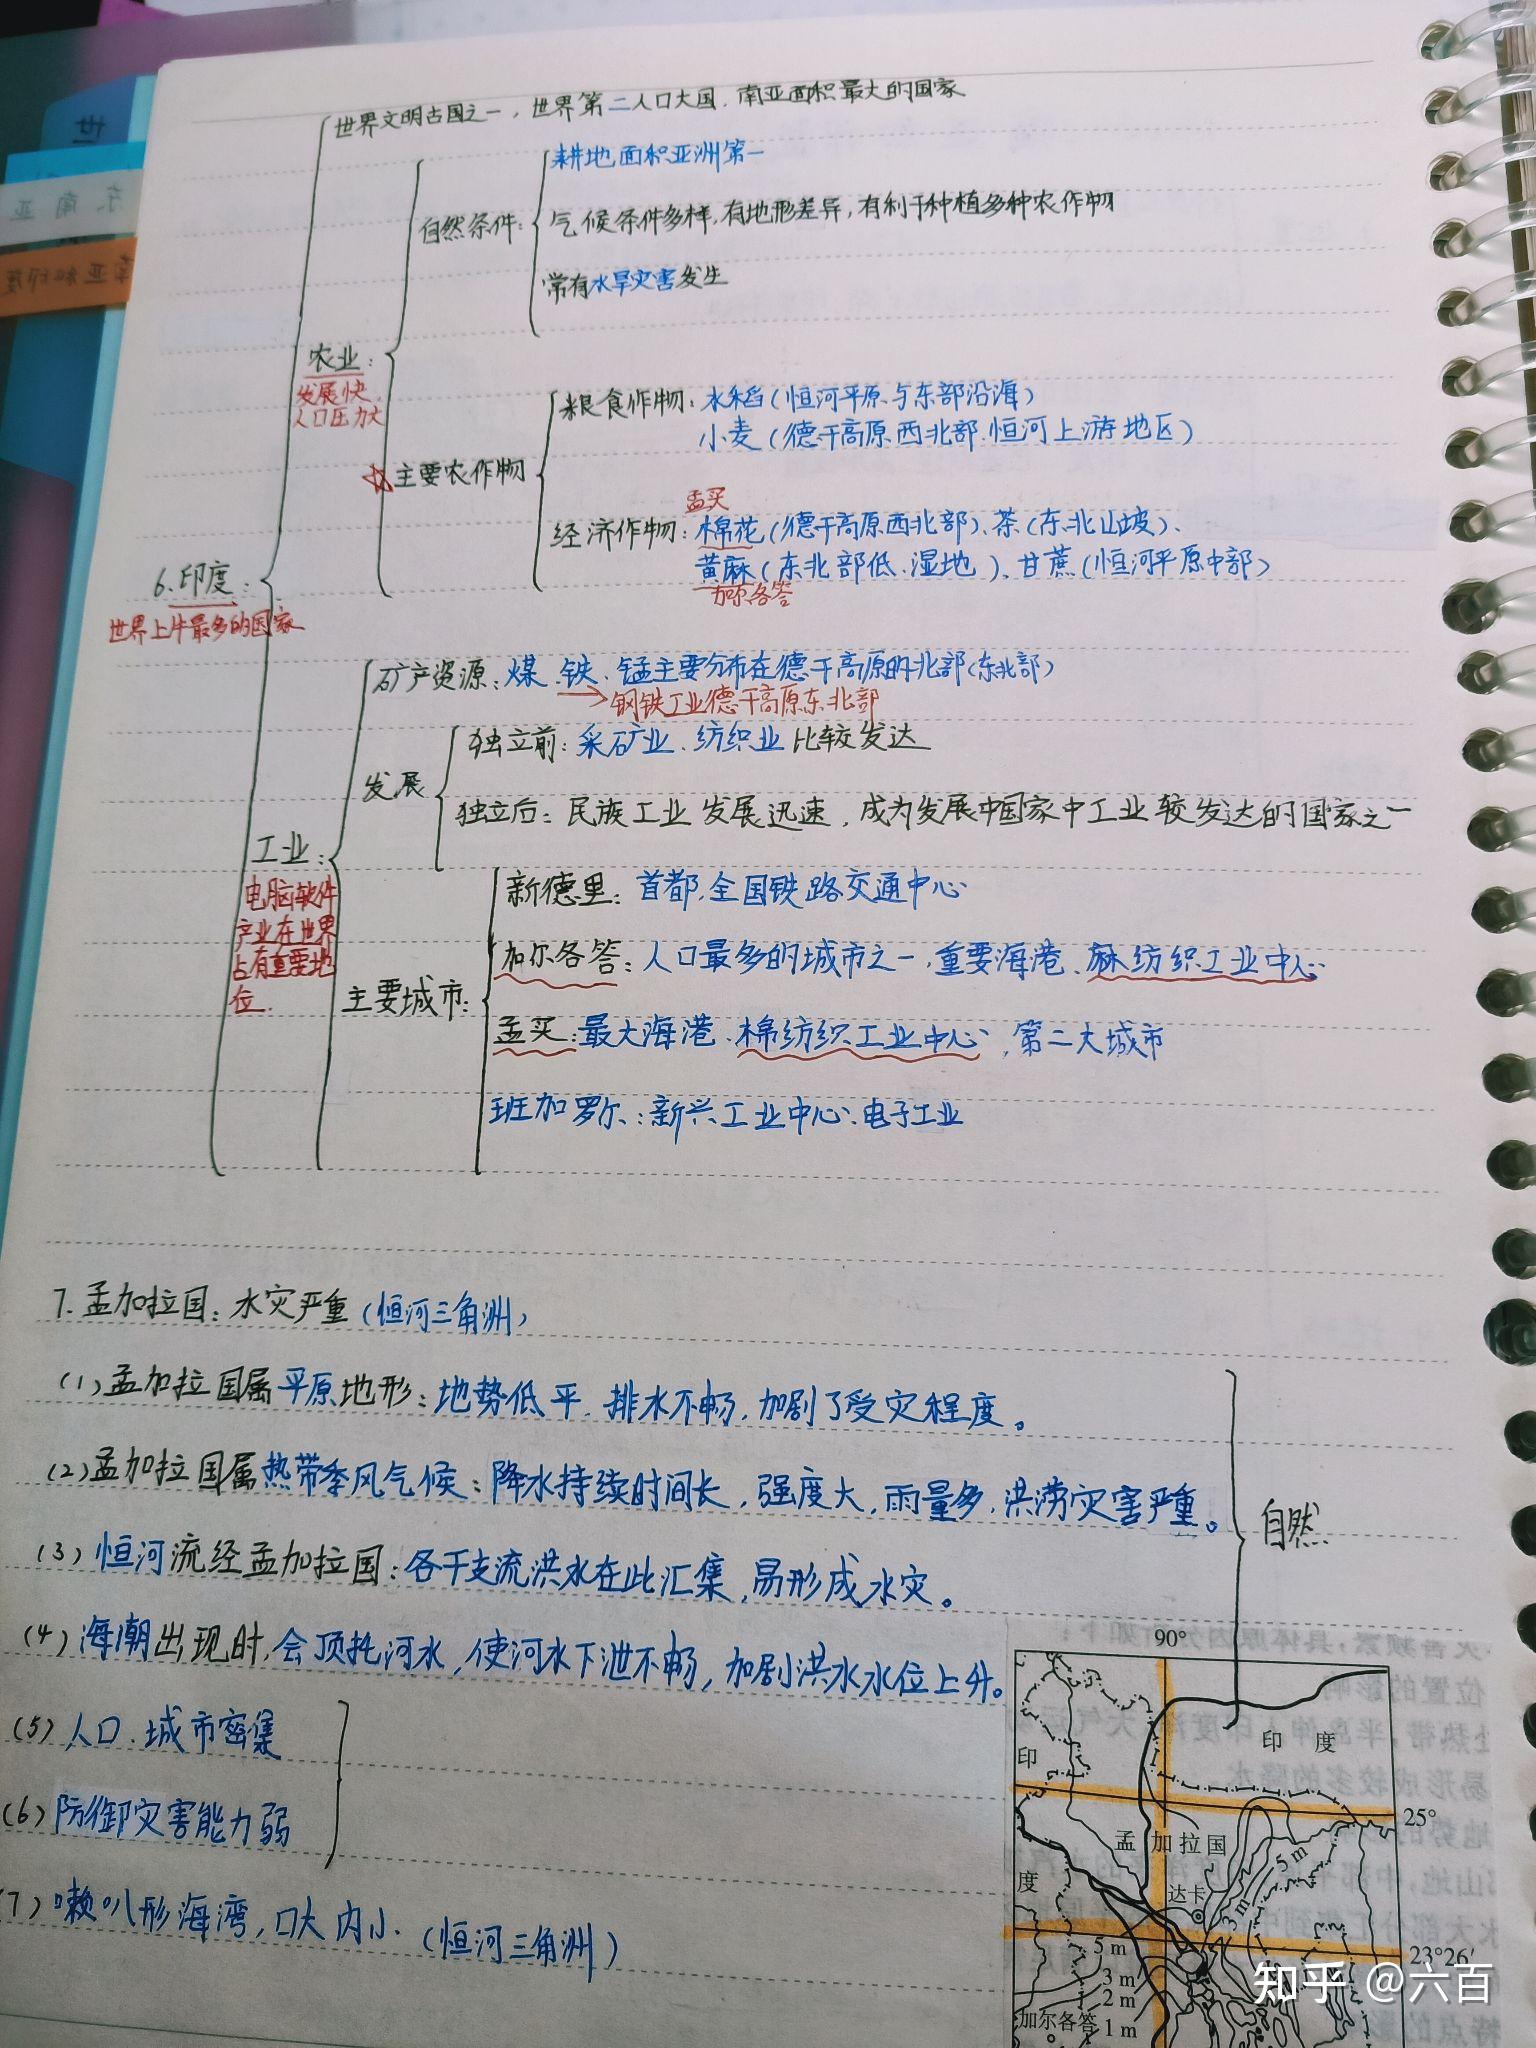 世界文明古国之一，世界第二人口大国，南亚面积最大的国家
耕地面积亚洲第一
自然条件：气候条件多样，有地形差异，有利于种植多种农作物
常有水旱灾害发生
农业：
发展快
人口压力大
粮食作物：水稻（恒河平原与东部沿海）
小麦（德干高原西北部、恒河上游地区）
主要农作物
孟买
经济作物：棉花（德干高原西北部）、茶（东北山坡）、
黄麻（东北部低、湿地）、甘蔗（恒河平原中部）
加尔各答
6.印度：
世界上牛最多的国家
矿产资源：煤、铁、锰主要分布在德干高原的北部（东北部）
→钢铁工业德干高原东北部
独立前：采矿业、纺织业比较发达
发展
独立后：民族工业发展迅速，成为发展中国家中工业较发达的国家之一
工业：
电脑软件
产业在世界
占有重要地
位.
新德里：首都，全国铁路交通中心
加尔各答：人口最多的城市之一，重要海港、麻纺织工业中心
主要城市：
孟买：最大海港、棉纺织工业中心，第二大城市
班加罗尔：新兴工业中心、电子工业
7.孟加拉国：水灾严重（恒河三角洲）
(1)孟加拉国属平原地形：地势低平，排水不畅，加剧了受灾程度。
(2)孟加拉国属热带季风气候：降水持续时间长，强度大，雨量多，洪涝灾害严重。
自然
(3)恒河流经孟加拉国：各干支流洪水在此汇集，易形成水灾。
(4)海潮出现时，会顶托河水，使河水下泄不畅，加剧洪水水位上升。
(5)人口、城市密集
(6)防御灾害能力弱
(7)喇叭形海湾，口大内小.（恒河三角洲）
90°
印 度
印
25°
孟加拉国
5 m
度
达卡
3 m
23°26′
5 m
3 m
2 m
加尔各答
1 m
知乎 @六百